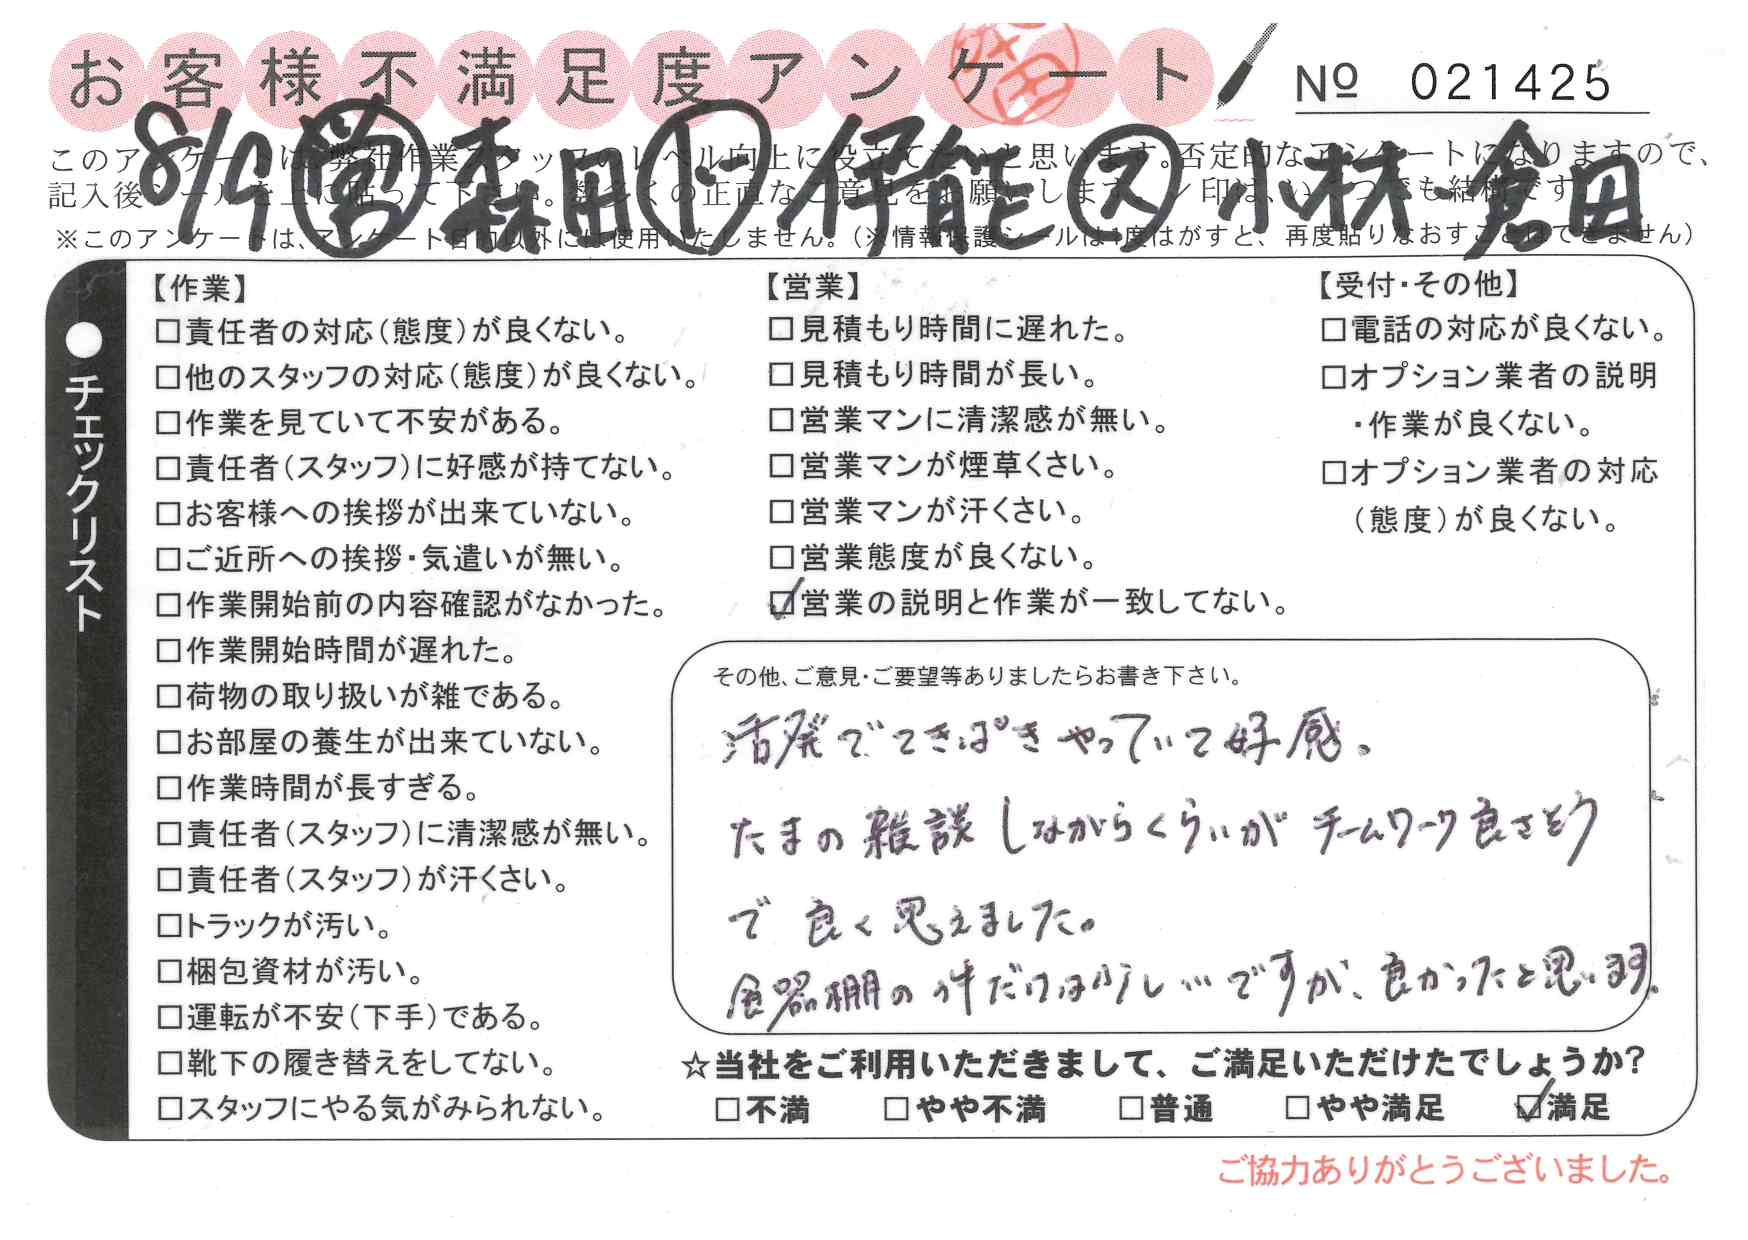 お客様不満足度アンケート
Nº 021425
8/9 営 森田 ド 伊能 ス 小林 倉田
このアンケートは、弊社作業スタッフのレベル向上に役立てたいと思います。否定的なアンケートになりますので、
記入後シールを上に貼って下さい。数多くの正直なご意見をお願いします。✓印は、いくつでも結構です。
※このアンケートは、アンケート目的以外には使用いたしません。（※情報保護シールは1度はがすと、再度貼りなおすことはできません）
●チェックリスト
【作業】
□責任者の対応（態度）が良くない。
□他のスタッフの対応（態度）が良くない。
□作業を見ていて不安がある。
□責任者（スタッフ）に好感が持てない。
□お客様への挨拶が出来ていない。
□ご近所への挨拶・気遣いが無い。
□作業開始前の内容確認がなかった。
□作業開始時間が遅れた。
□荷物の取り扱いが雑である。
□お部屋の養生が出来ていない。
□作業時間が長すぎる。
□責任者（スタッフ）に清潔感が無い。
□責任者（スタッフ）が汗くさい。
□トラックが汚い。
□梱包資材が汚い。
□運転が不安（下手）である。
□靴下の履き替えをしてない。
□スタッフにやる気がみられない。
【営業】
□見積もり時間に遅れた。
□見積もり時間が長い。
□営業マンに清潔感が無い。
□営業マンが煙草くさい。
□営業マンが汗くさい。
□営業態度が良くない。
☑営業の説明と作業が一致してない。
【受付・その他】
□電話の対応が良くない。
□オプション業者の説明
・作業が良くない。
□オプション業者の対応
（態度）が良くない。
その他、ご意見・ご要望等ありましたらお書き下さい。
活発でてきぱきやっていて好感。
たまの雑談しながらくらいがチームワーク良さそう
で良く思えました。
食器棚の件だけは少し…ですが、良かったと思います。
☆当社をご利用いただきまして、ご満足いただけたでしょうか?
□不満 □やや不満 □普通 □やや満足 ☑満足
ご協力ありがとうございました。